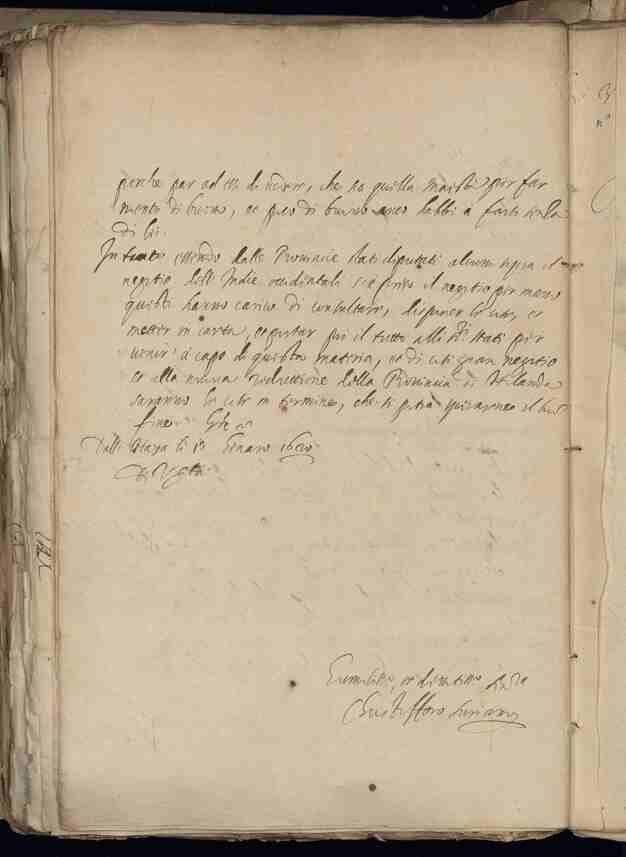 perche par ad essi di vedere, che sa quella Maestà per far
mento di buono, et però di buono anco habbi a farsi
di lui.
In tanto essendo dalle Provincie stati deputati alcuni sopra il
negotio dell'Indie occidentali s'è preso il negotio per mano
questi hanno carico di consultare, disponer le cose, et
metter in carta, e portar poi il tutto alli ss.ri stati per
venir a capo di questa materia, et di così gran negotio
et alla nuova reduttione della Provincia di Holanda
saranno le cose in termine, che si potrà il
fine. Gratie etc.
Dall'Haya li Genaro 1620
Di Vostra
Humilissimo, et devotissimo ser.re
Christofforo Suriano